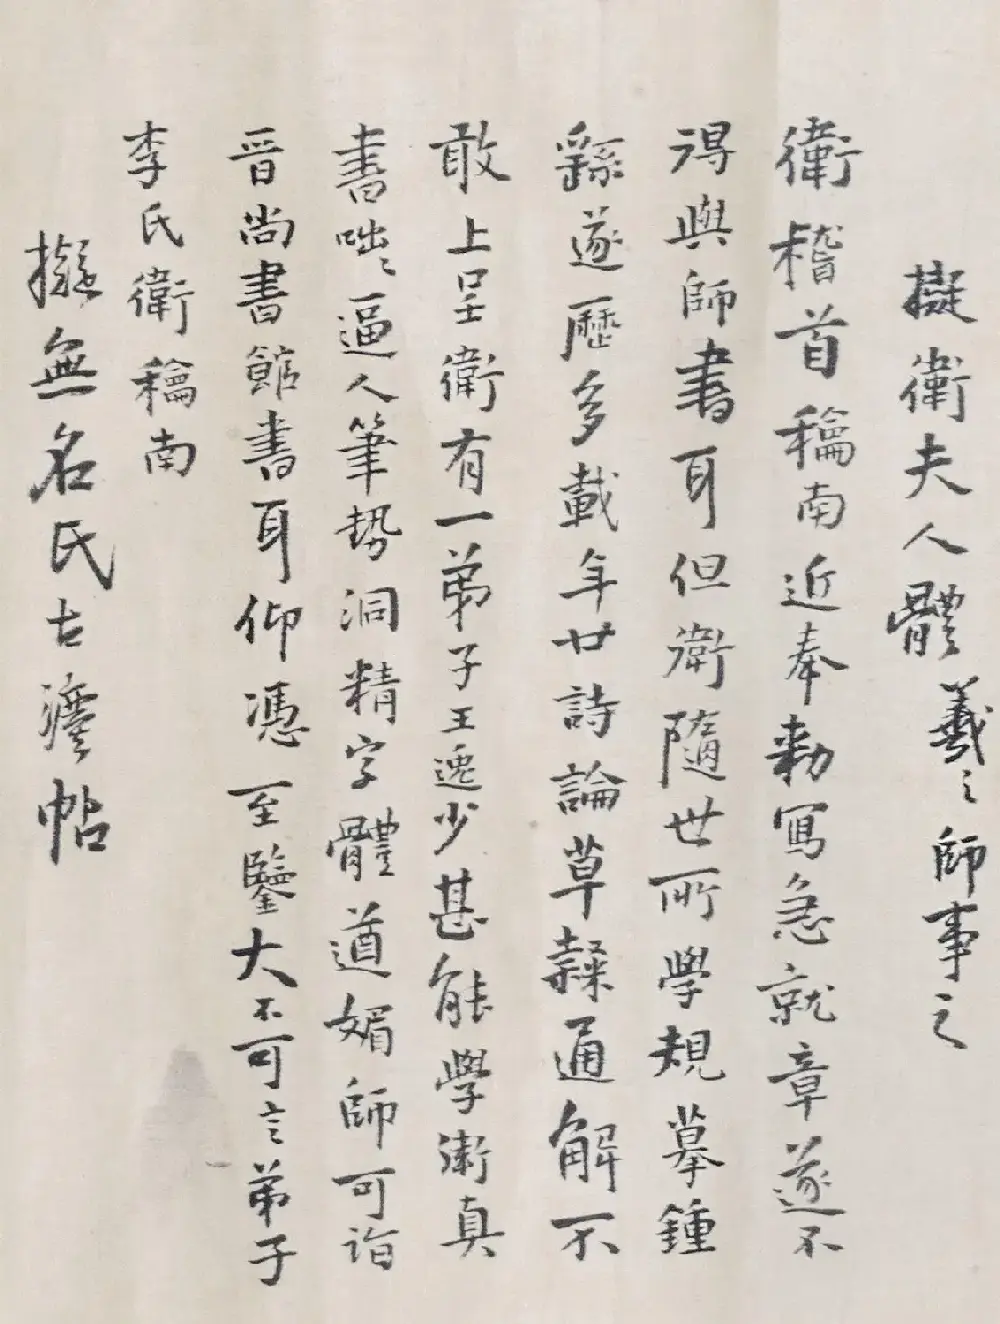 擬衛夫人體羲之師事之
衛稽首和南近奉勅寫急就章遂不
得與師書耳但衛隨世所學規摹鍾
繇遂歷多載年廿詩論草隸通解不
敢上呈衛有一弟子王逸少甚能學衛真
書咄咄逼人筆勢洞精字體遒媚師可詣
晉尚書館書耳仰憑至鑒大不可言弟子
李氏衛和南
擬無名氏古瘞帖